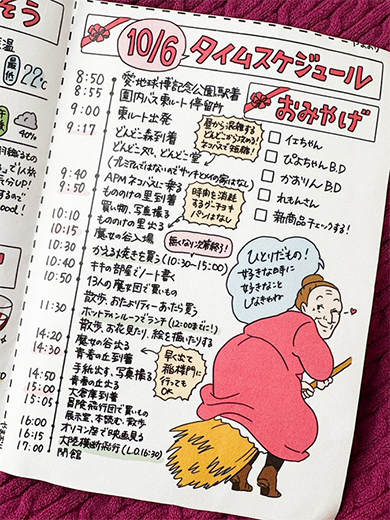 そう
気温
最低
22℃
40%
10/6 タイムスケジュール
8:50 愛・地球博記念公園駅着
8:55 園内バス東ルート停留所
9:00 東ルート出発
9:17 どんどこ森到着
どんどこ処、どんどこ堂
昼から混雑する
どんどこから攻める!
ネコバスで短縮!
9:40 APMネコバスに乗る
9:50 もののけの里到着
買い物、写真撮る
時間を消耗
するタタラ
パンはなし
10:10 もののけの里出る
10:15 魔女の谷入場
無くなり次第終了!
10:30 かえる焼きを買う(10:30~15:00)
10:40 キキの部屋でノート書く
10:50 13人の魔女団で買いもの
散歩、おたよりティーあったら買う
11:30 ホットティンループランチ(12:00までに!)
散歩、お花見たり、絵を描いたりする
14:20 魔女の谷出る
14:30 青春の丘到着
手紙出す、写真撮る
早く出て
稲楼門に
行っても
OK
14:50 青春の丘出る
15:00 大倉庫到着
15:05 冒険飛行団で買いもの
展示室、本読む、散歩
16:00 オリヲン座で映画見る
16:15 大陸横断飛行(L.O.16:30)
17:00 閉館
おみやげ
イエちゃん
ぴよちゃんB.D
かおりんB.D
れもんさん
新商品チェックする!
ひとりだもの!
好きな時に
好きなこと
しなきゃね